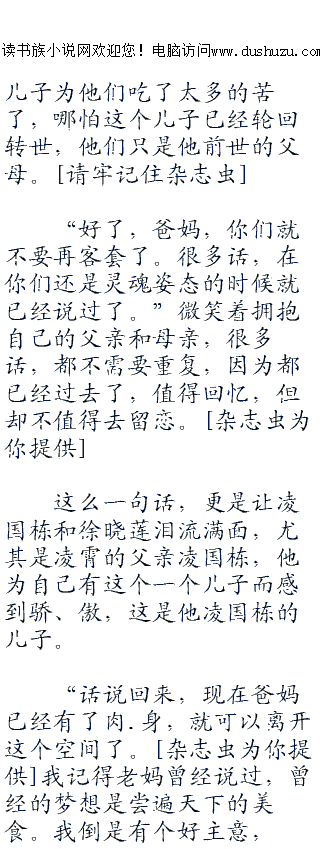 读书族小说网欢迎您！电脑访问www.dushuzu.com
儿子为他们吃了太多的苦
了，哪怕这个儿子已经轮回
转世，他们只是他前世的父
母。[请牢记住杂志虫]
“好了，爸妈，你们就
不要再客套了。很多话，在
你们还是灵魂姿态的时候就
已经说过了。”微笑着拥抱
自己的父亲和母亲，很多
话，都不需要重复，因为都
已经过去了，值得回忆，但
却不值得去留恋。[杂志虫为
你提供]
这么一句话，更是让凌
国栋和徐晓莲泪流满面，尤
其是凌霄的父亲凌国栋，他
为自己有这个一个儿子而感
到骄、傲，这是他凌国栋的
儿子。
“话说回来，现在爸妈
已经有了肉.身，就可以离开
这个空间了。[杂志虫为你提
供]我记得老妈曾经说过，曾
经的梦想是尝遍天下的美
食。我倒是有个好主意，